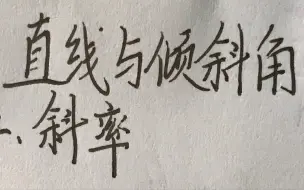 直线与倾斜角
、斜率